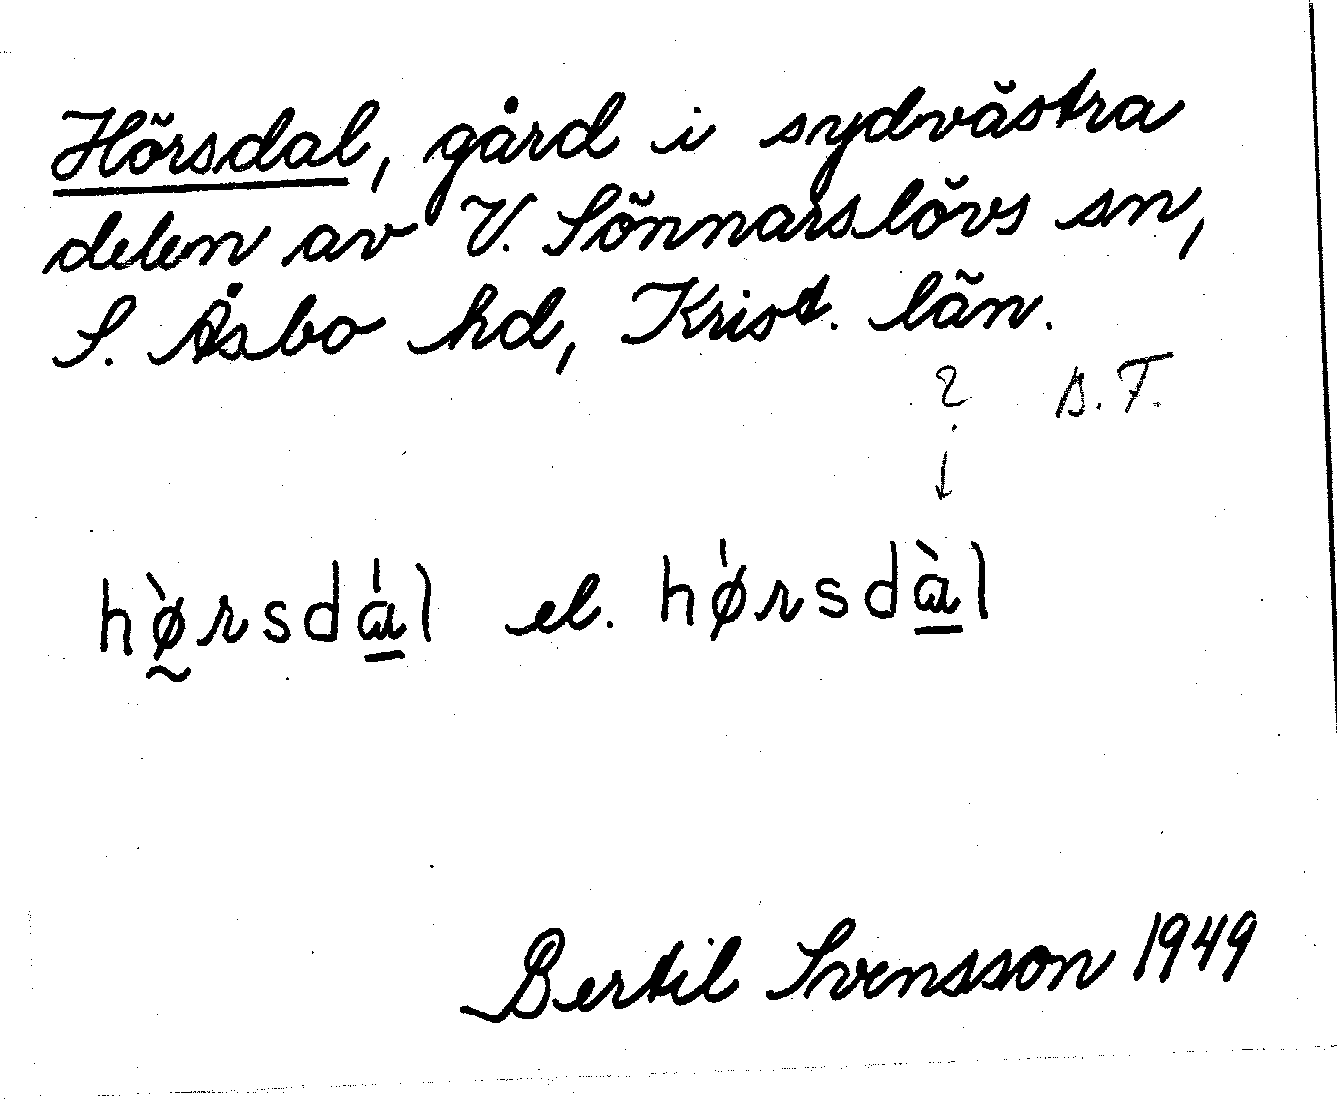 Hörsdal, gård i sydvästra
delen av V. Sönnarslövs sn,
S. Åsbo hd, Krist. län.
? B.F.
↓
hø̰̀rsdɑ̱̍l el. hø̍rsdɑ̱̀l
Bertil Svensson 1949